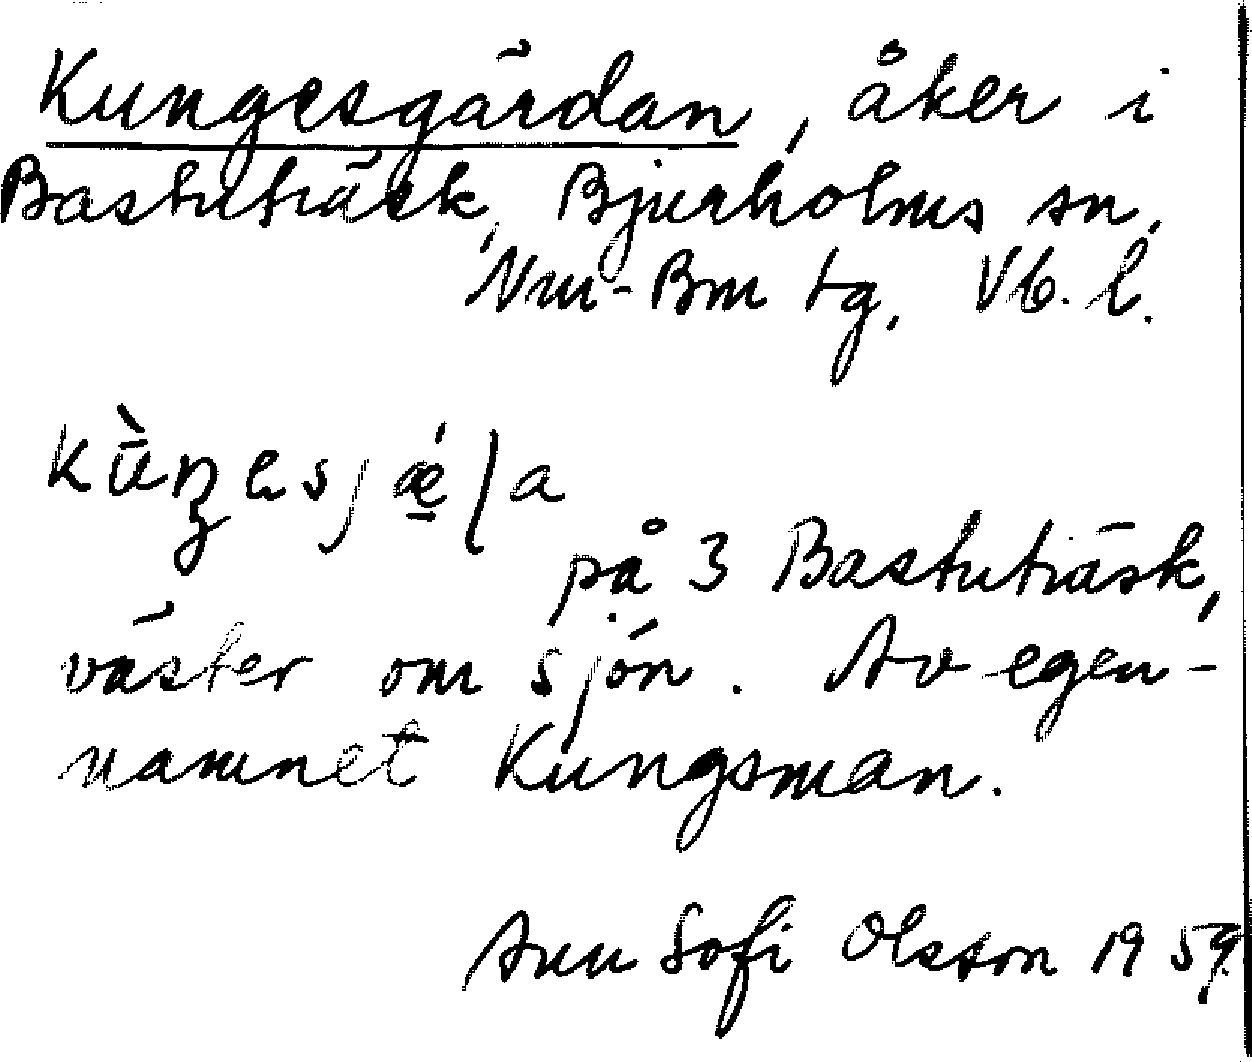 Kungesgärdan, åker i
Bastuträsk, Bjurholms sn,
Nm-Bm tg, Vb. l.
på 3 Bastuträsk,
väster om sjön. Av egen-
namnet Kungsman.
Ann Sofi Olsson 1959.